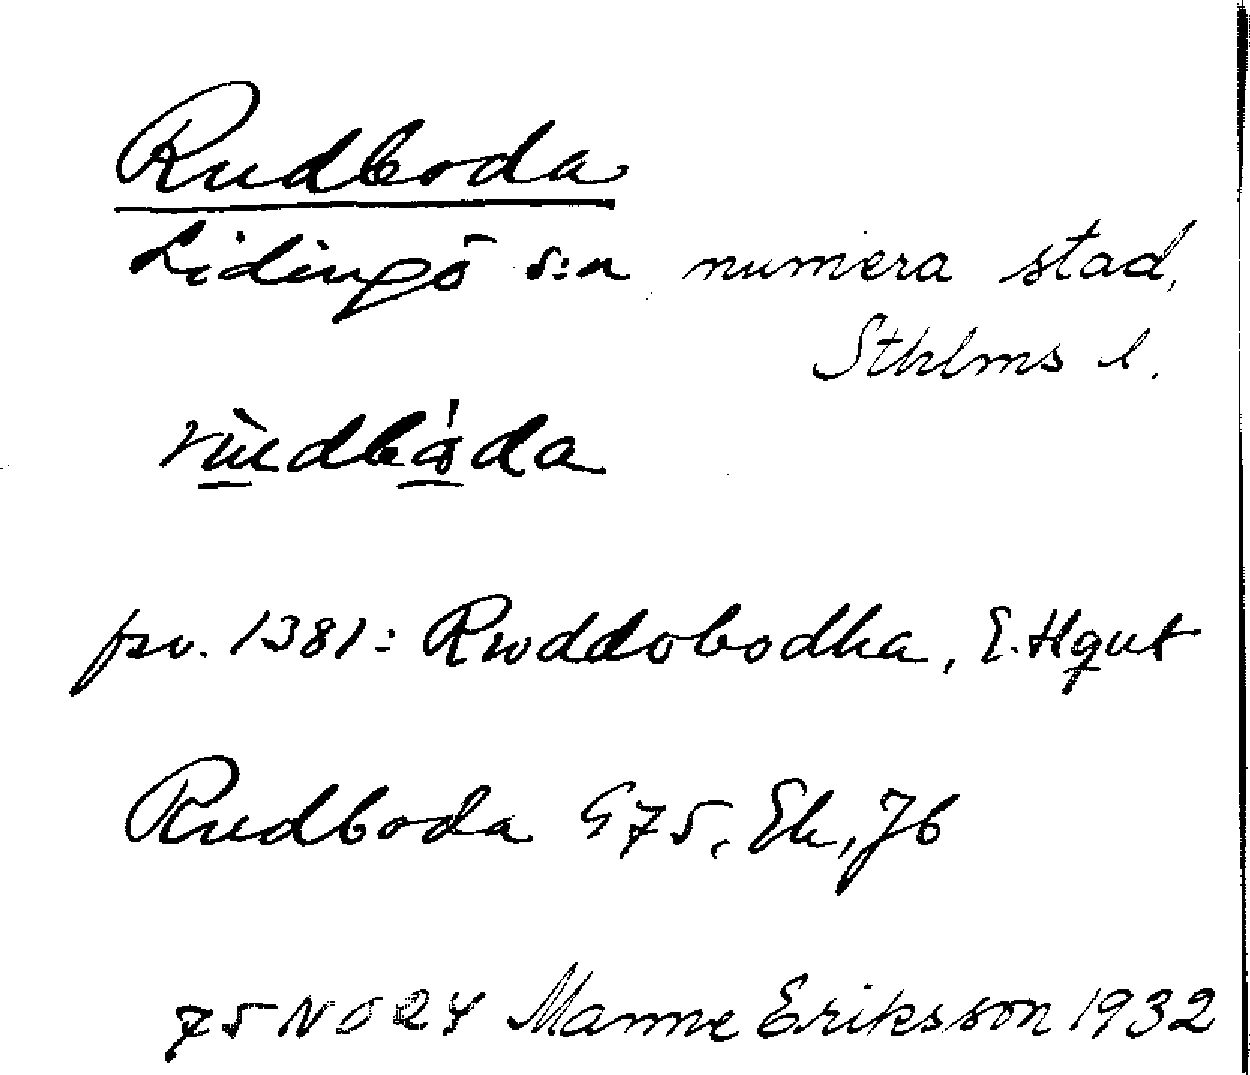 Rudboda
Lidingö s:n numera stad,
Sthlms l.
rùdbå'da
pv. 1381: Rwddobodha, E. Hqut
Rudboda G75, Ek, Jb
75 NO 24 Manne Eriksson 1932